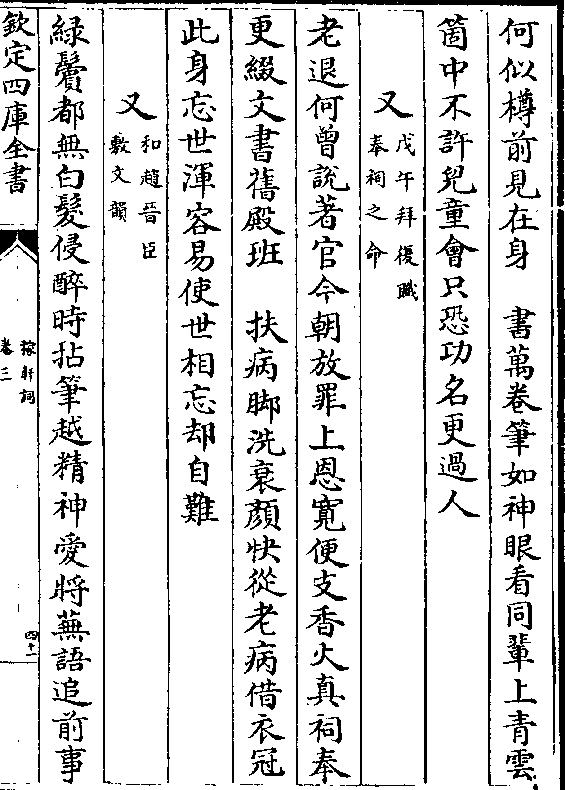 何似樽前見在身　書萬卷筆如神眼看同輩上青雲
箇中不許兒童會只恐功名更過人
又戊午拜復職奉祠之命
老退何曾說著官今朝放罪上恩寛便支香火真祠奉
更綴文書舊殿班　扶病脚洗衰顔快從老病借衣冠
此身忘世渾容易使世相忘却自難
又和趙晉臣敷文韻
緑鬢都無白髮侵醉時拈筆越精神愛將蕪語追前事
欽定四庫全書
稼軒詞
卷三
四十一